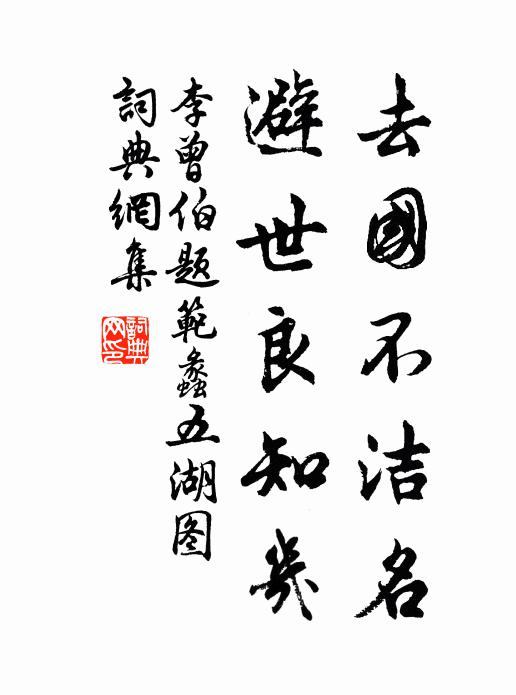 去國不洁名
避世良知幾
李曾伯题範蠡五湖图
詞典網集
詞典网印